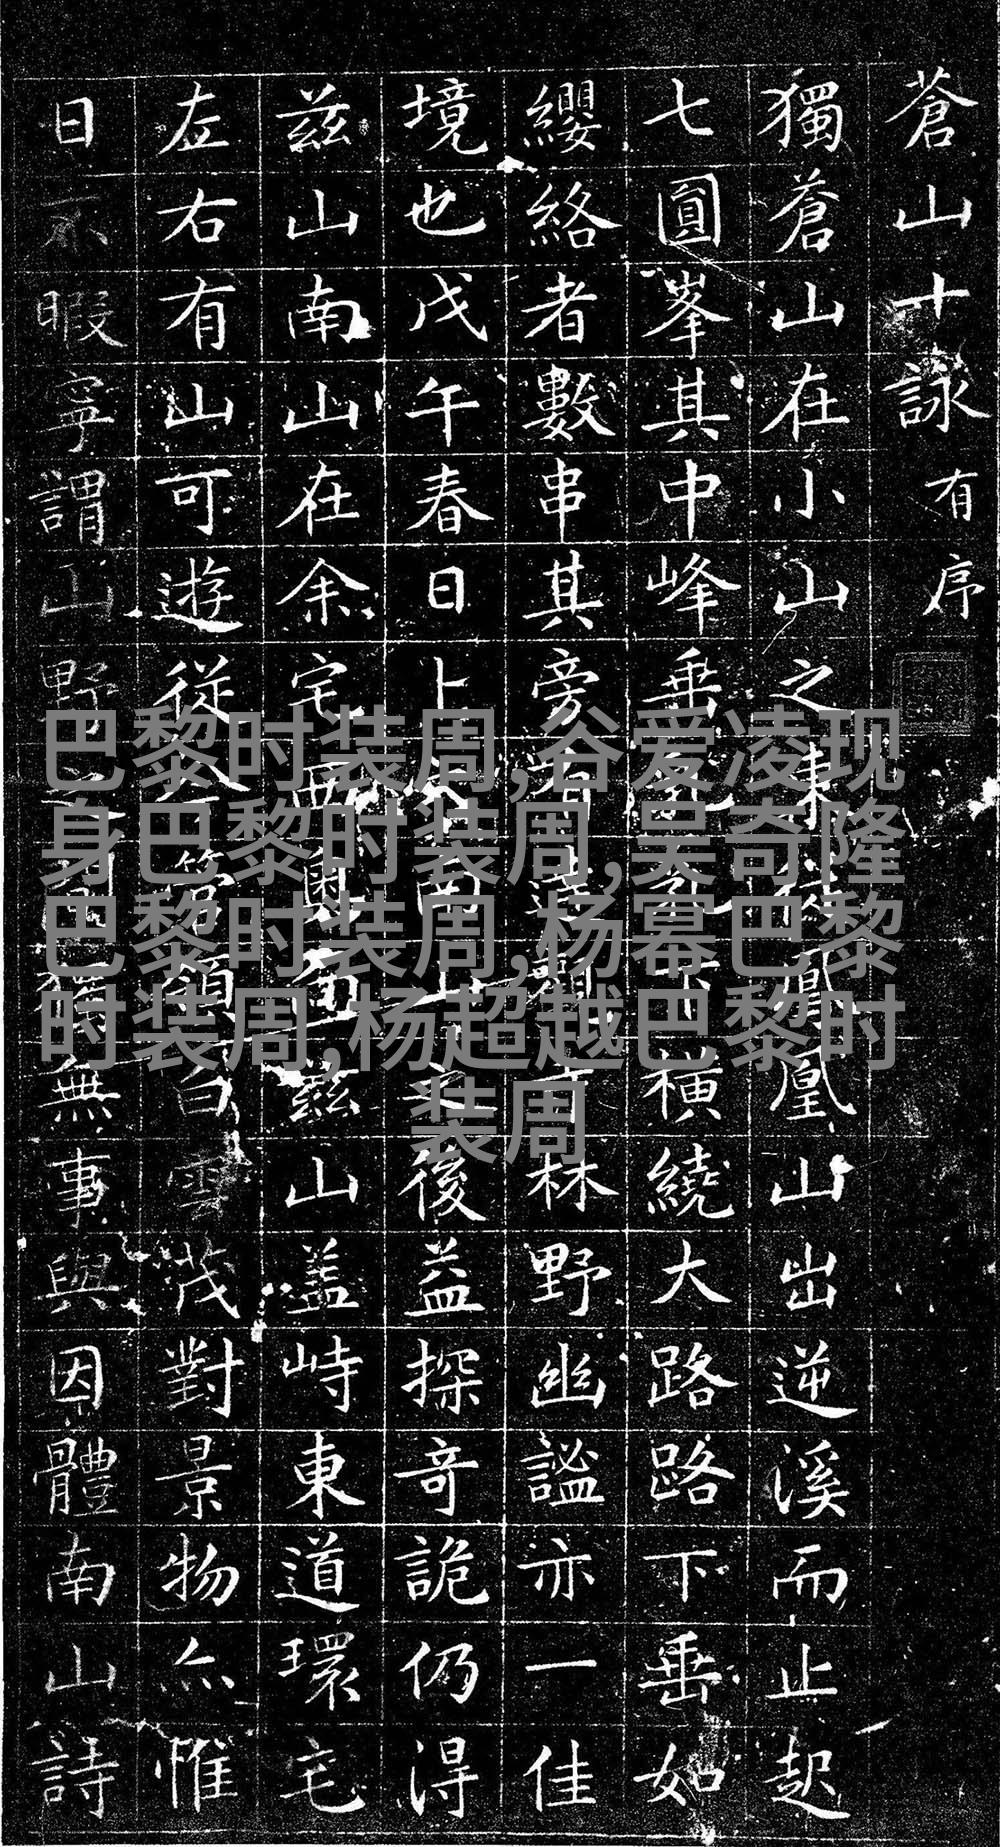 蒼山十詠 有序
獨蒼山在小山之東鳳凰山出逆溪而止起
七圓峯其中峰垂下橫繞大路路下垂如
纓絡者數串其旁有林野幽謐亦一佳
境也戊午春日卜山之後益探奇詭仍得
兹山南山在余宅西面兹山盖峙東道環宅
左右有山可遊從管領白雲茂對景物亦惟
日不暇寧謂山野之無事與因體南山詩
巴黎时装周,谷爱凌现
身巴黎时装周,吴奇隆
巴黎时装周,杨幂巴黎
时装周,杨超越巴黎时
装周